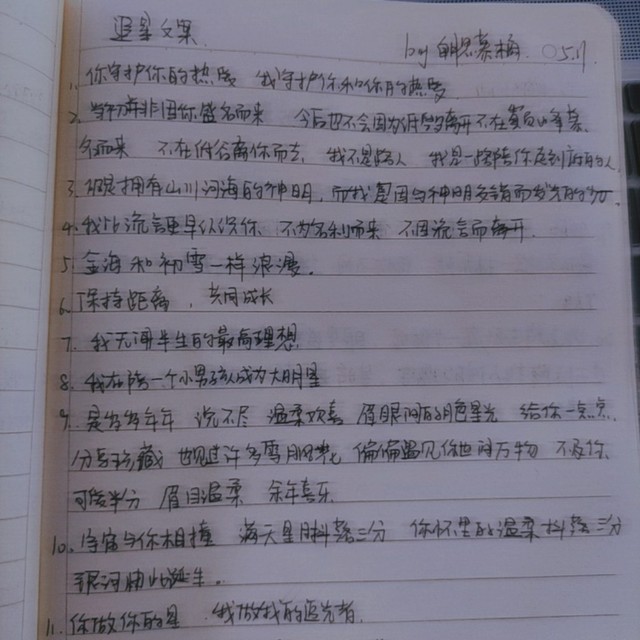 追星文案 by 05.11
1. 你守护你的热爱 我守护你和你的热爱
2. 当初并非因你盛名而来 今后也不会因你低谷离开 不在巅峰慕
名而来 不在低谷离你而去 我不是路人 我是一路陪你走到底的人
3. 你是拥有山川河海的神明, 而我是因与神明交错而发光的
4. 我比流言更早认识你 不为名利而来 不因流言而离开.
5. 金海和初雪一样浪漫.
6. 保持距离, 共同成长
7. 我无闻半生的最高理想.
8. 我在陪一个小男孩成为大明星
9. 是岁岁年年 说不尽 温柔欢喜 眉眼间的月色星光 给你一点点
分享珍藏 也见过许多 偏偏遇见你 世间万物 不及你
可爱半分 眉目温柔 余年喜乐
10. 宇宙与你相撞 满天星月抖落三分 你怀里的温柔抖落三分
银河由此诞生.
11. 你做你的星 我做我的追光者.